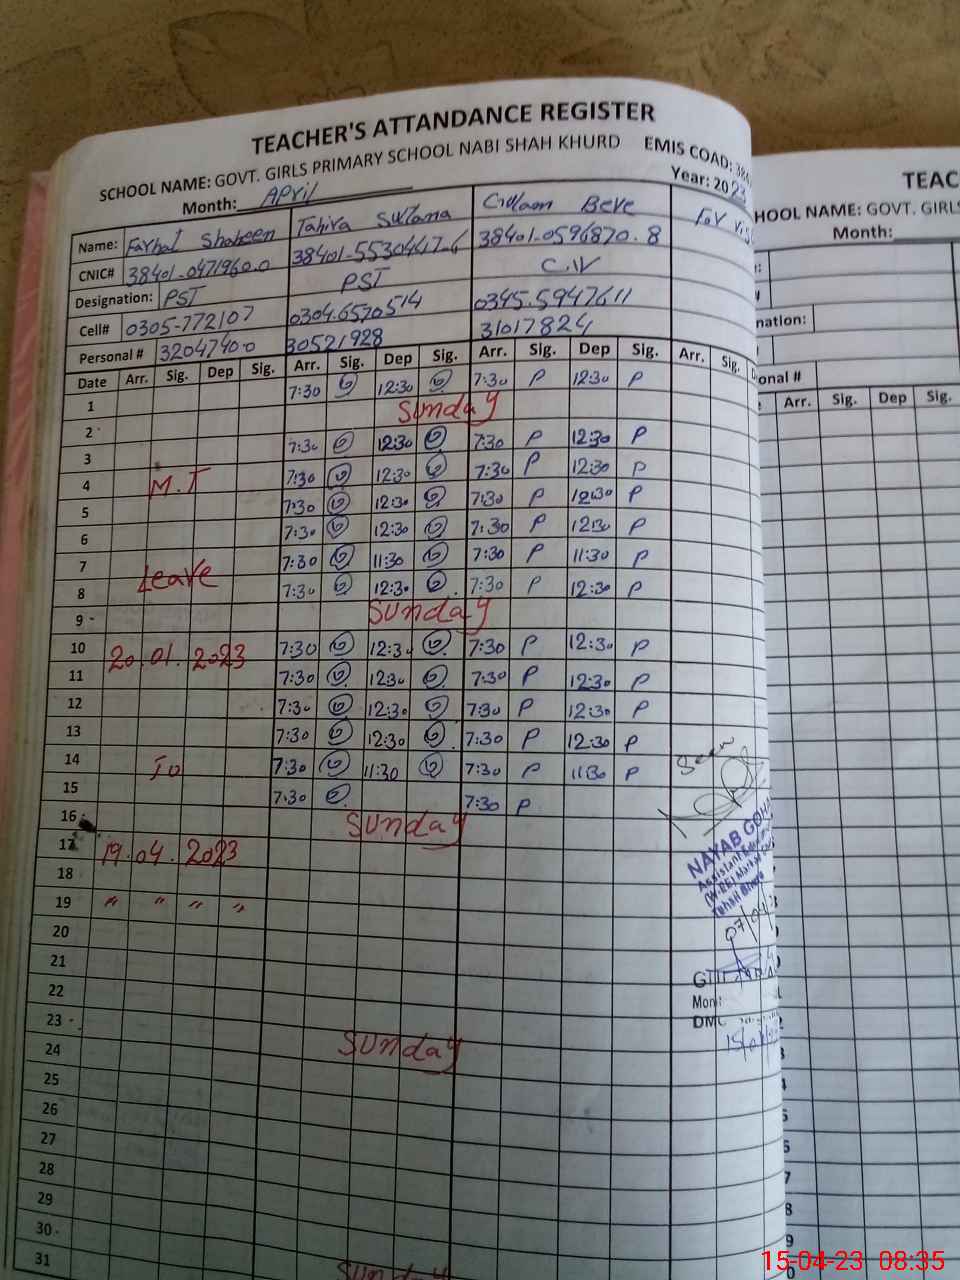 TEACHER'S ATTANDANCE REGISTER
SCHOOL NAME: GOVT. GIRLS PRIMARY SCHOOL NABI SHAH KHURD EMIS COAD: 384
Month: April Year: 2023
Name: Farhat Shaheen Tahira Sultana Beve For
CNIC# 38401-0471960.0 38401-5530447-6 38401.0596870.8
Designation: PST PST C.IV
Cell# 0305-772107 0304.6520514 0345.5947611
Personal # 32047400 30521928 31017824
Date Arr. Sig. Dep Sig. Arr. Sig. Dep Sig. Arr. Sig. Dep Sig. Arr. Sig.
1 7:30 12:30 7:30 P 12:30 P
2 Sunday
3 7:30 12:30 7:30 P 12:30 P
4 M.T 7:30 12:30 7:30 P 12:30 P
5 7:30 12:30 7:30 P 12:30 P
6 7:30 12:30 7:30 P 12:30 P
7 7:30 11:30 7:30 P 11:30 P
8 Leave 7:30 12:30 7:30 P 12:30 P
9 Sunday
10 20.01.2023 7:30 12:30 7:30 P 12:30 P
11 7:30 12:30 7:30 P 12:30 P
12 7:30 12:30 7:30 P 12:30 P
13 7:30 12:30 7:30 P 12:30 P
14 To 7:30 11:30 7:30 P 11:30 P
15 7:30 7:30 P
16 Sunday
17 19.04.2023
18
19 " " " "
20
21
22
23 Sunday
24
25
26
27
28
29
30 Sunday
31
Seen
NAYAB GOHA
Assistant Educa
(W-EE) Markaz
Tehsil Bhera
07/04/23
Moni
DMO
TEAC
HOOL NAME: GOVT. GIRLS
Month:
nation:
onal #
Arr. Sig. Dep Sig.
15-04-23 08:35